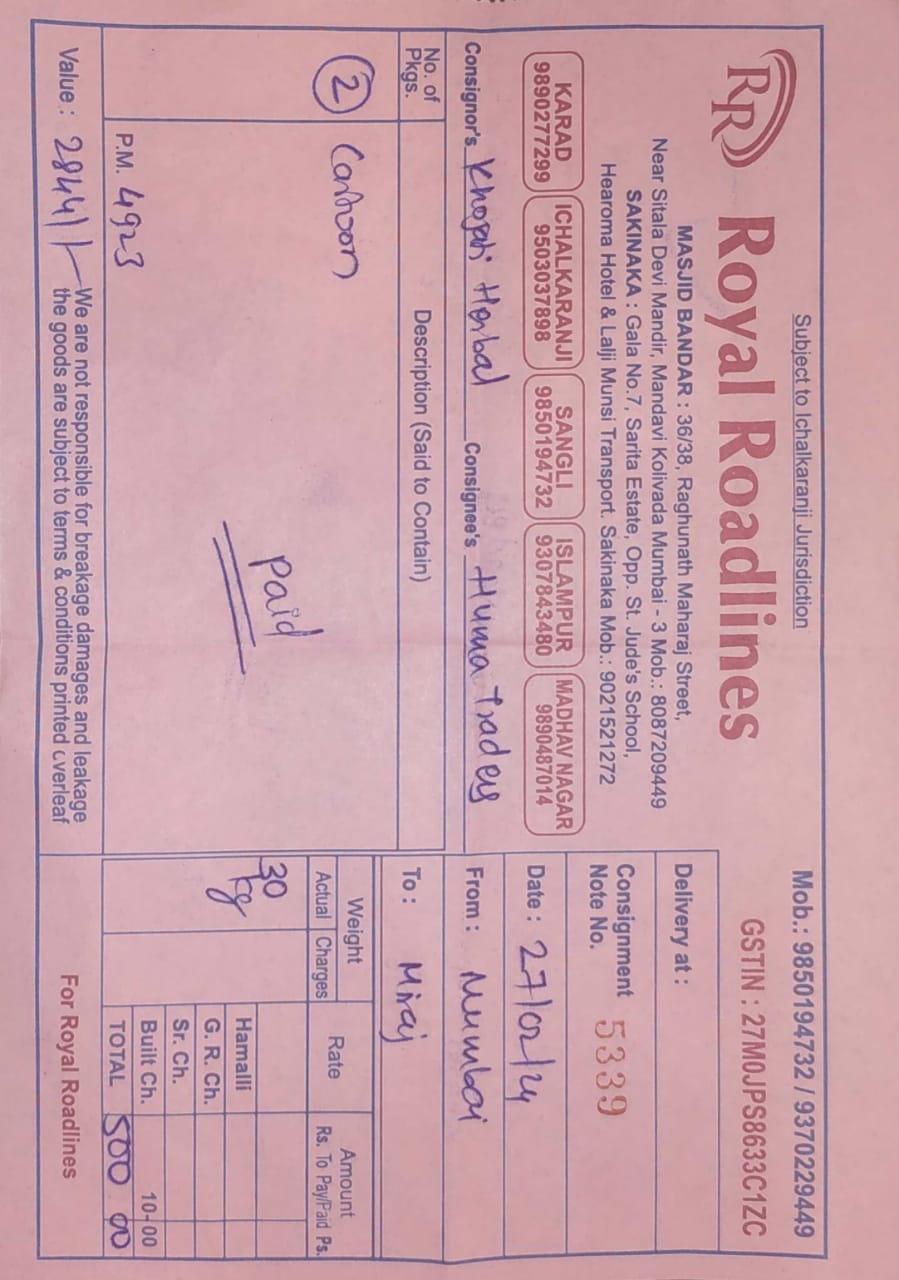 Subject to Ichalkaranji Jurisdiction
Mob.: 9850194732 / 9370229449
RR Royal Roadlines
GSTIN : 27M0JPS8633C1ZC
MASJID BANDAR : 36/38, Raghunath Maharaj Street,
Near Sitala Devi Mandir, Mandavi Kolivada Mumbai - 3 Mob.: 8087209449
SAKINAKA : Gala No.7, Sarita Estate, Opp. St. Jude's School,
Hearoma Hotel & Lalji Munsi Transport. Sakinaka Mob.: 9021521272
KARAD
9890277299
ICHALKARANJI
9503037898
SANGLI
9850194732
ISLAMPUR
9307843480
MADHAV NAGAR
9890487014
Delivery at :
Consignment
Note No. 5339
Date : 27/02/24
Consignor's Khojati Herbal Consignee's Huma Traders
From : Mumbai
To : Miraj
No. of
Pkgs.
Description (Said to Contain)
Weight
Actual Charges
Rate
Amount
Rs. To Pay/Paid Ps.
2 Cartoon
30
kg
Paid
Hamalli
G. R. Ch.
Sr. Ch.
Built Ch. 10-00
P.M. 4923
TOTAL 500 00
Value : 28441/-
We are not responsible for breakage damages and leakage
the goods are subject to terms & conditions printed overleaf
For Royal Roadlines